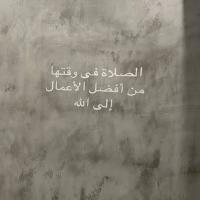 الصلاة في وقتها
من أفضل الأعمال
إلى الله